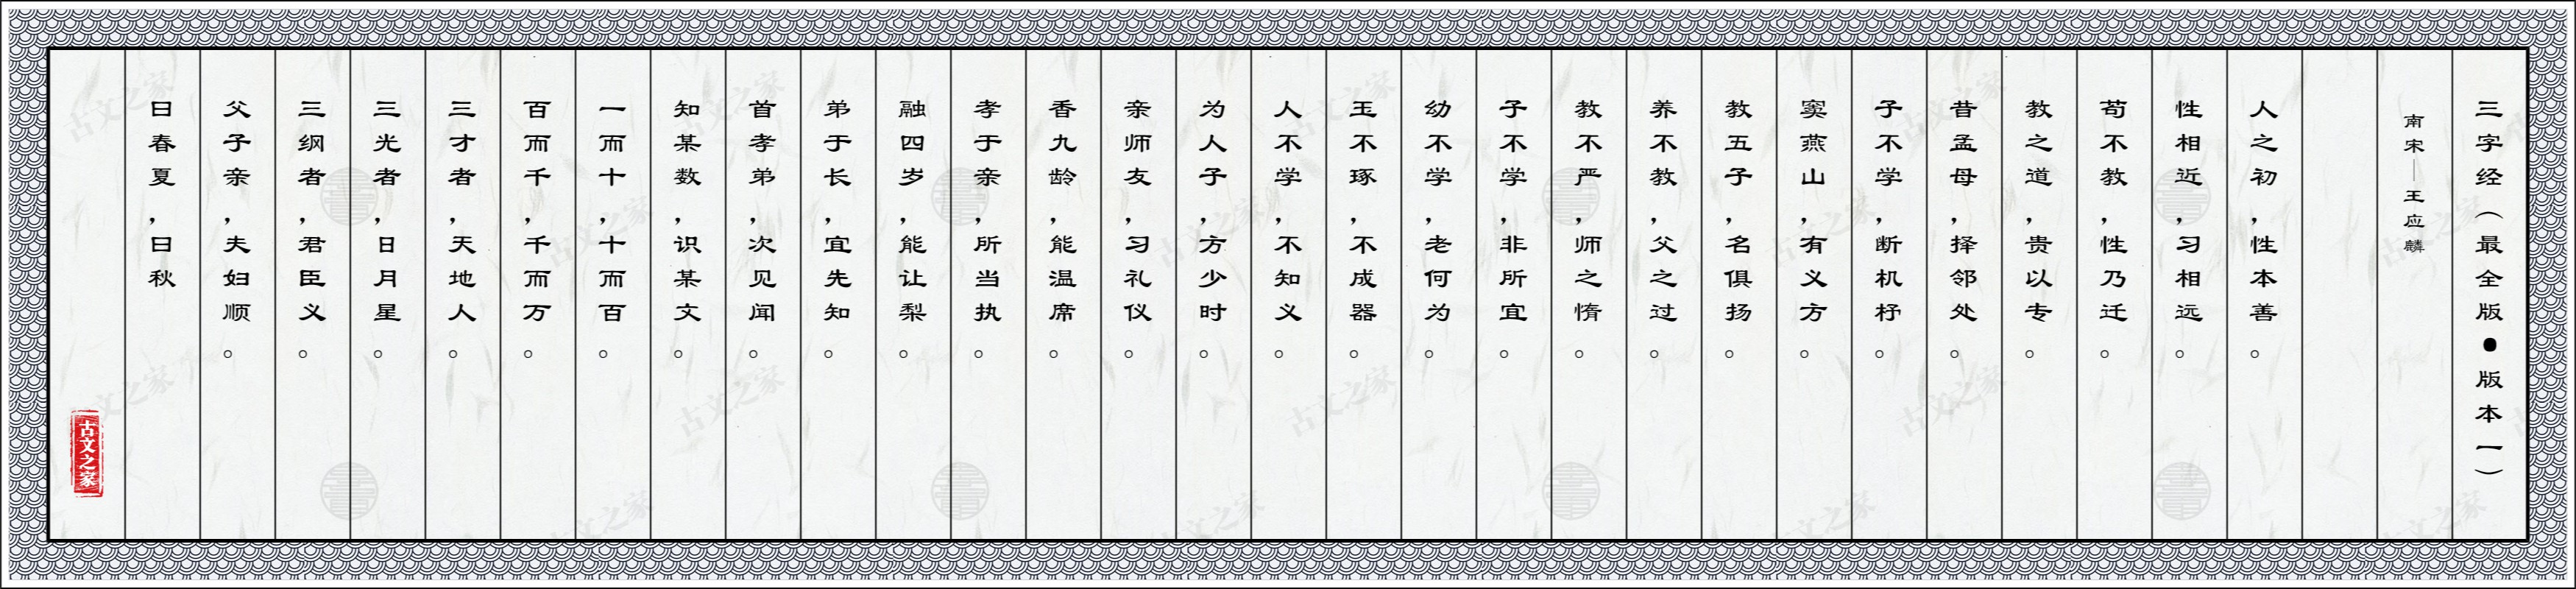 三字经（最全版●版本一）
南宋—王应麟
人之初，性本善。
性相近，习相远。
苟不教，性乃迁。
教之道，贵以专。
昔孟母，择邻处。
子不学，断机杼。
窦燕山，有义方。
教五子，名俱扬。
养不教，父之过。
教不严，师之惰。
子不学，非所宜。
幼不学，老何为。
玉不琢，不成器。
人不学，不知义。
为人子，方少时。
亲师友，习礼仪。
香九龄，能温席。
孝于亲，所当执。
融四岁，能让梨。
弟于长，宜先知。
首孝弟，次见闻。
知某数，识某文。
一而十，十而百。
百而千，千而万。
三才者，天地人。
三光者，日月星。
三纲者，君臣义。
父子亲，夫妇顺。
曰春夏，曰秋
古文之家